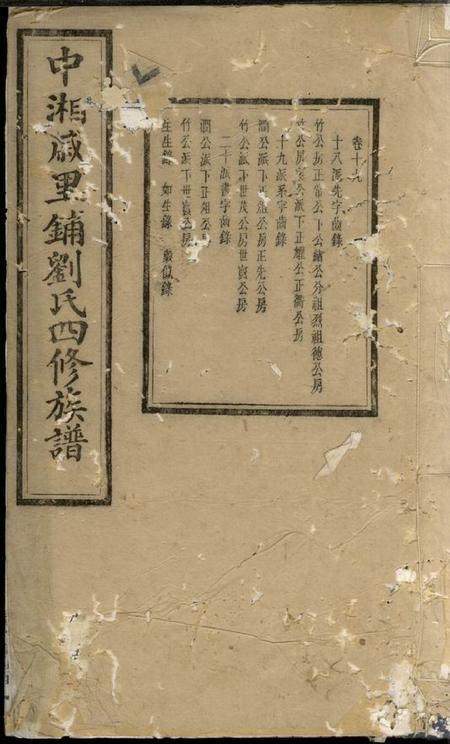 中湘咸里鋪劉氏四修族譜
卷十九
十八派先字齒錄
竹公房正常公下公緒公分祖烈祖德公房
竹公房寅公派下正耀公正衢公房
十九派系字齒錄
澗公派下正煊公房正先公房
竹公派下世茂公房世賓公房
二十派書字齒錄
澗公派下正煊公房
竹公派下世賓公房
生生錄 如生錄 裁似錄